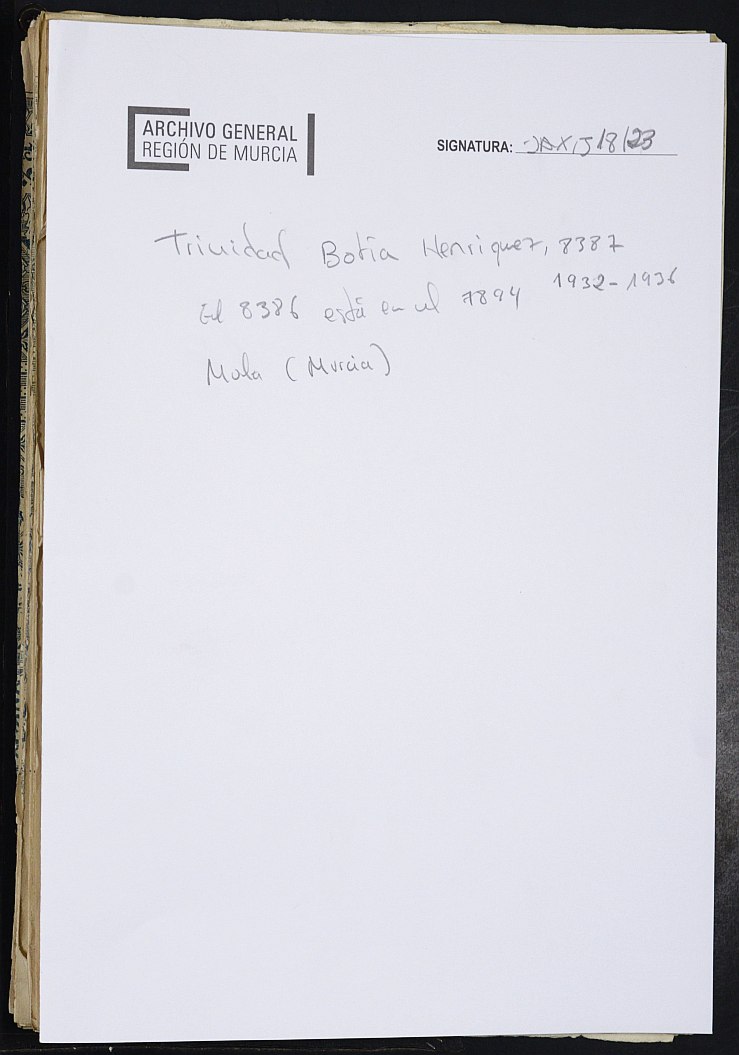 ARCHIVO GENERAL
REGIÓN DE MURCIA
SIGNATURA: JAX,J 18/23
Trinidad Botía Henriquez, 8387
1932-1936
El 8386 está en el 7894
Mula (Murcia)